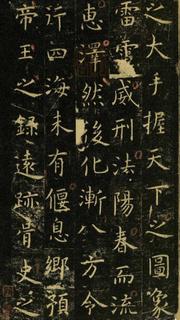 之大手握天下之圖象
雷電威刑法陽春而流
惠澤然後化漸八方令
行四海未有偃息鄉預
帝王之錄遠跡胥史之